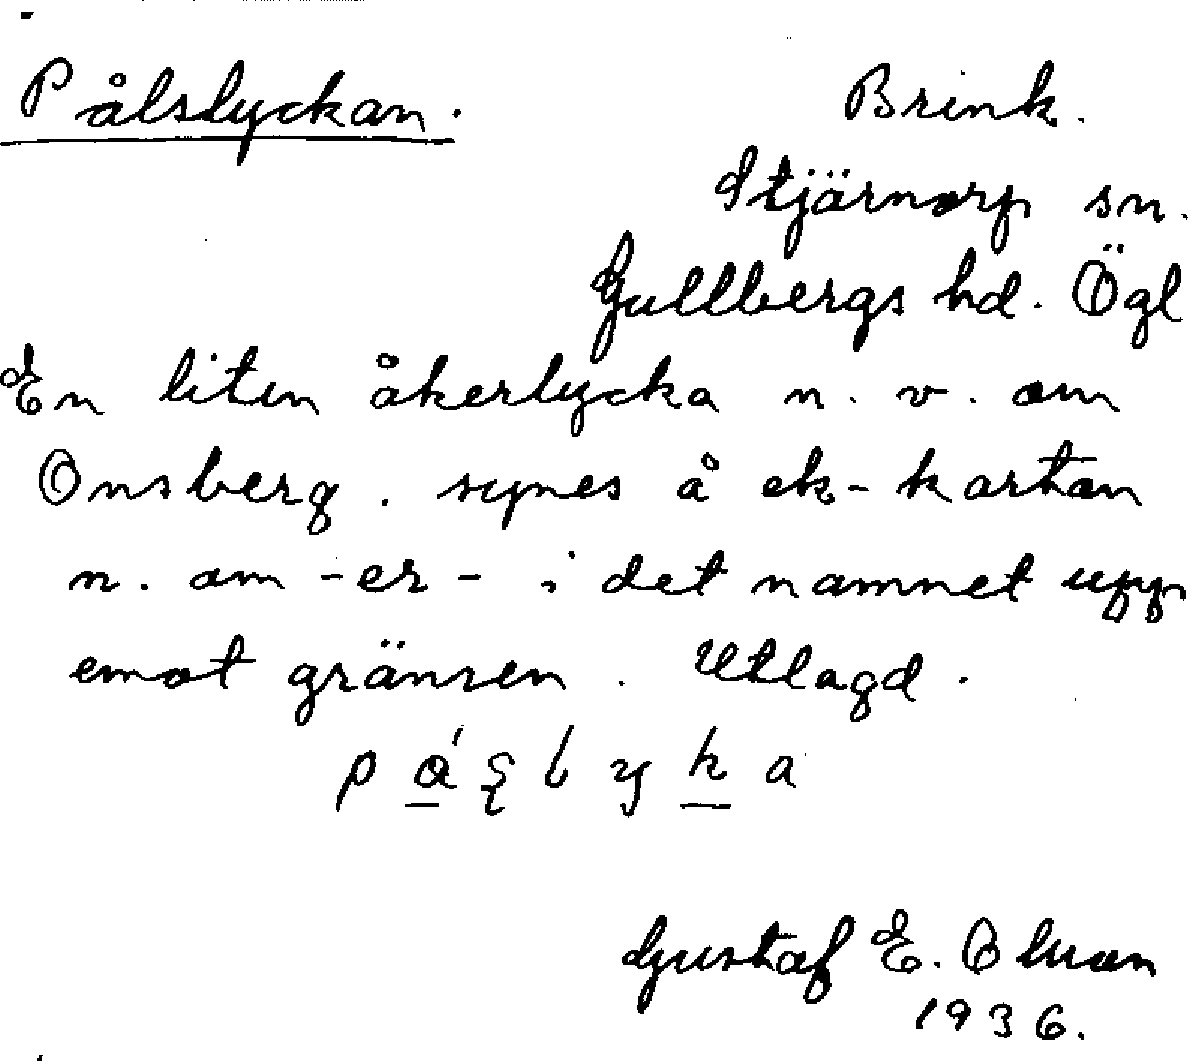 Pålslyckan.
Brink.
Stjärnorp sn.
Gullbergs hd. Ögl
En liten åkerlycka n. v. om
Onsberg. synes å ek-kartan
n. om -er- i det namnet upp
emot gränsen. Utlagd.
Gustaf E.
1936.